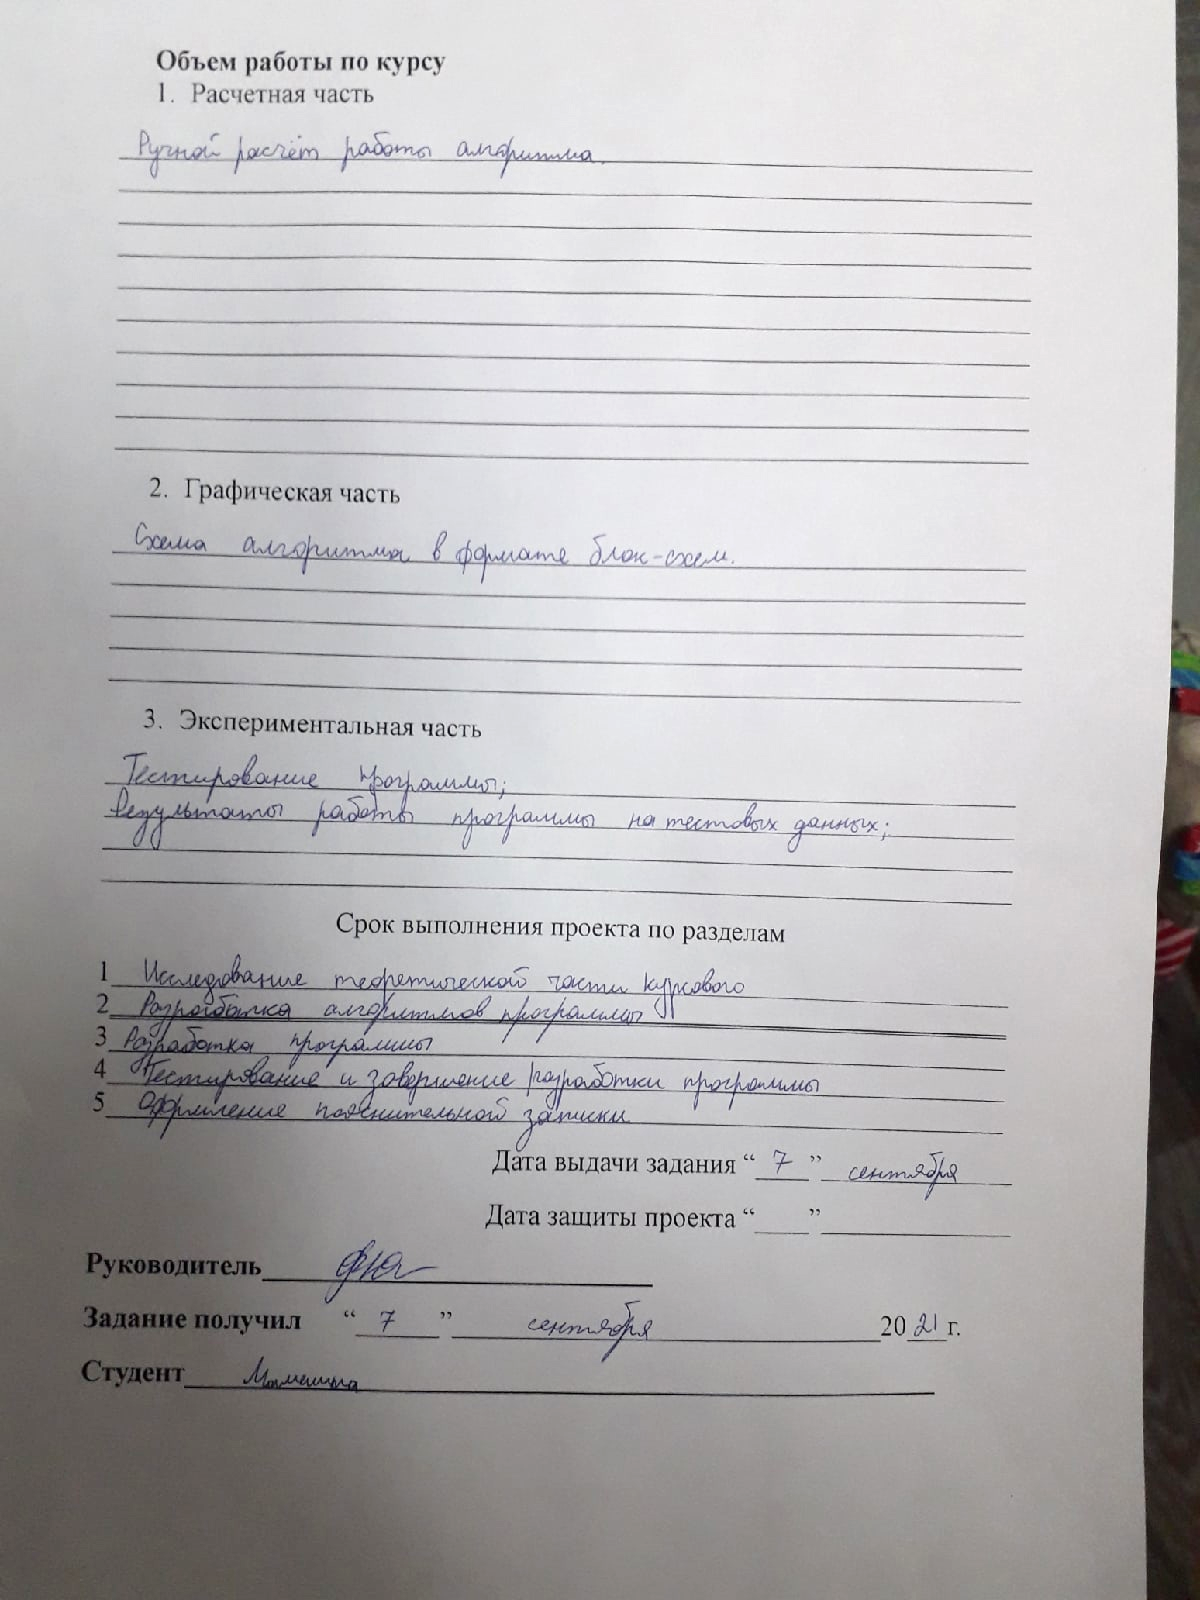 Объем работы по курсу
1. Расчетная часть
Ручной расчёт работы алгоритма.
2. Графическая часть
Схема алгоритма в формате блок-схем.
3. Экспериментальная часть
Тестирование программы;
Результаты работы программы на тестовых данных;
Срок выполнения проекта по разделам
1 Исследование теоретической части курсового
2 Разработка алгоритмов программы
3 Разработка программы
4 Тестирование и завершение разработки программы
5 Оформление пояснительной записки
Дата выдачи задания “ 7 ” сентября
Дата защиты проекта “ ”
Руководитель
Задание получил “ 7 ” сентября 2021 г.
Студент